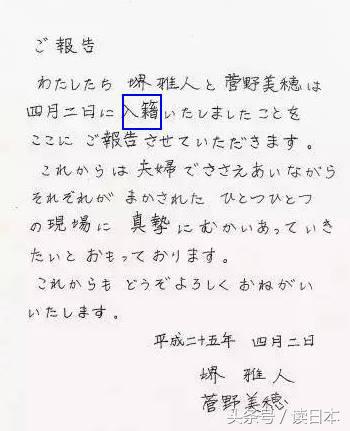 ご報告
わたしたち 堺雅人と菅野美穂は
四月二日に入籍いたしましたことを
ここに ご報告させていただきます。
これからは 夫婦でささえあいながら
それぞれが まかされた ひとつひとつ
の現場に 真摯にむかいあっていき
たいと おもっております。
これからも どうぞよろしく おねがい
いたします。
平成二十五年 四月二日
堺 雅人
菅野美穂
头条号/读日本